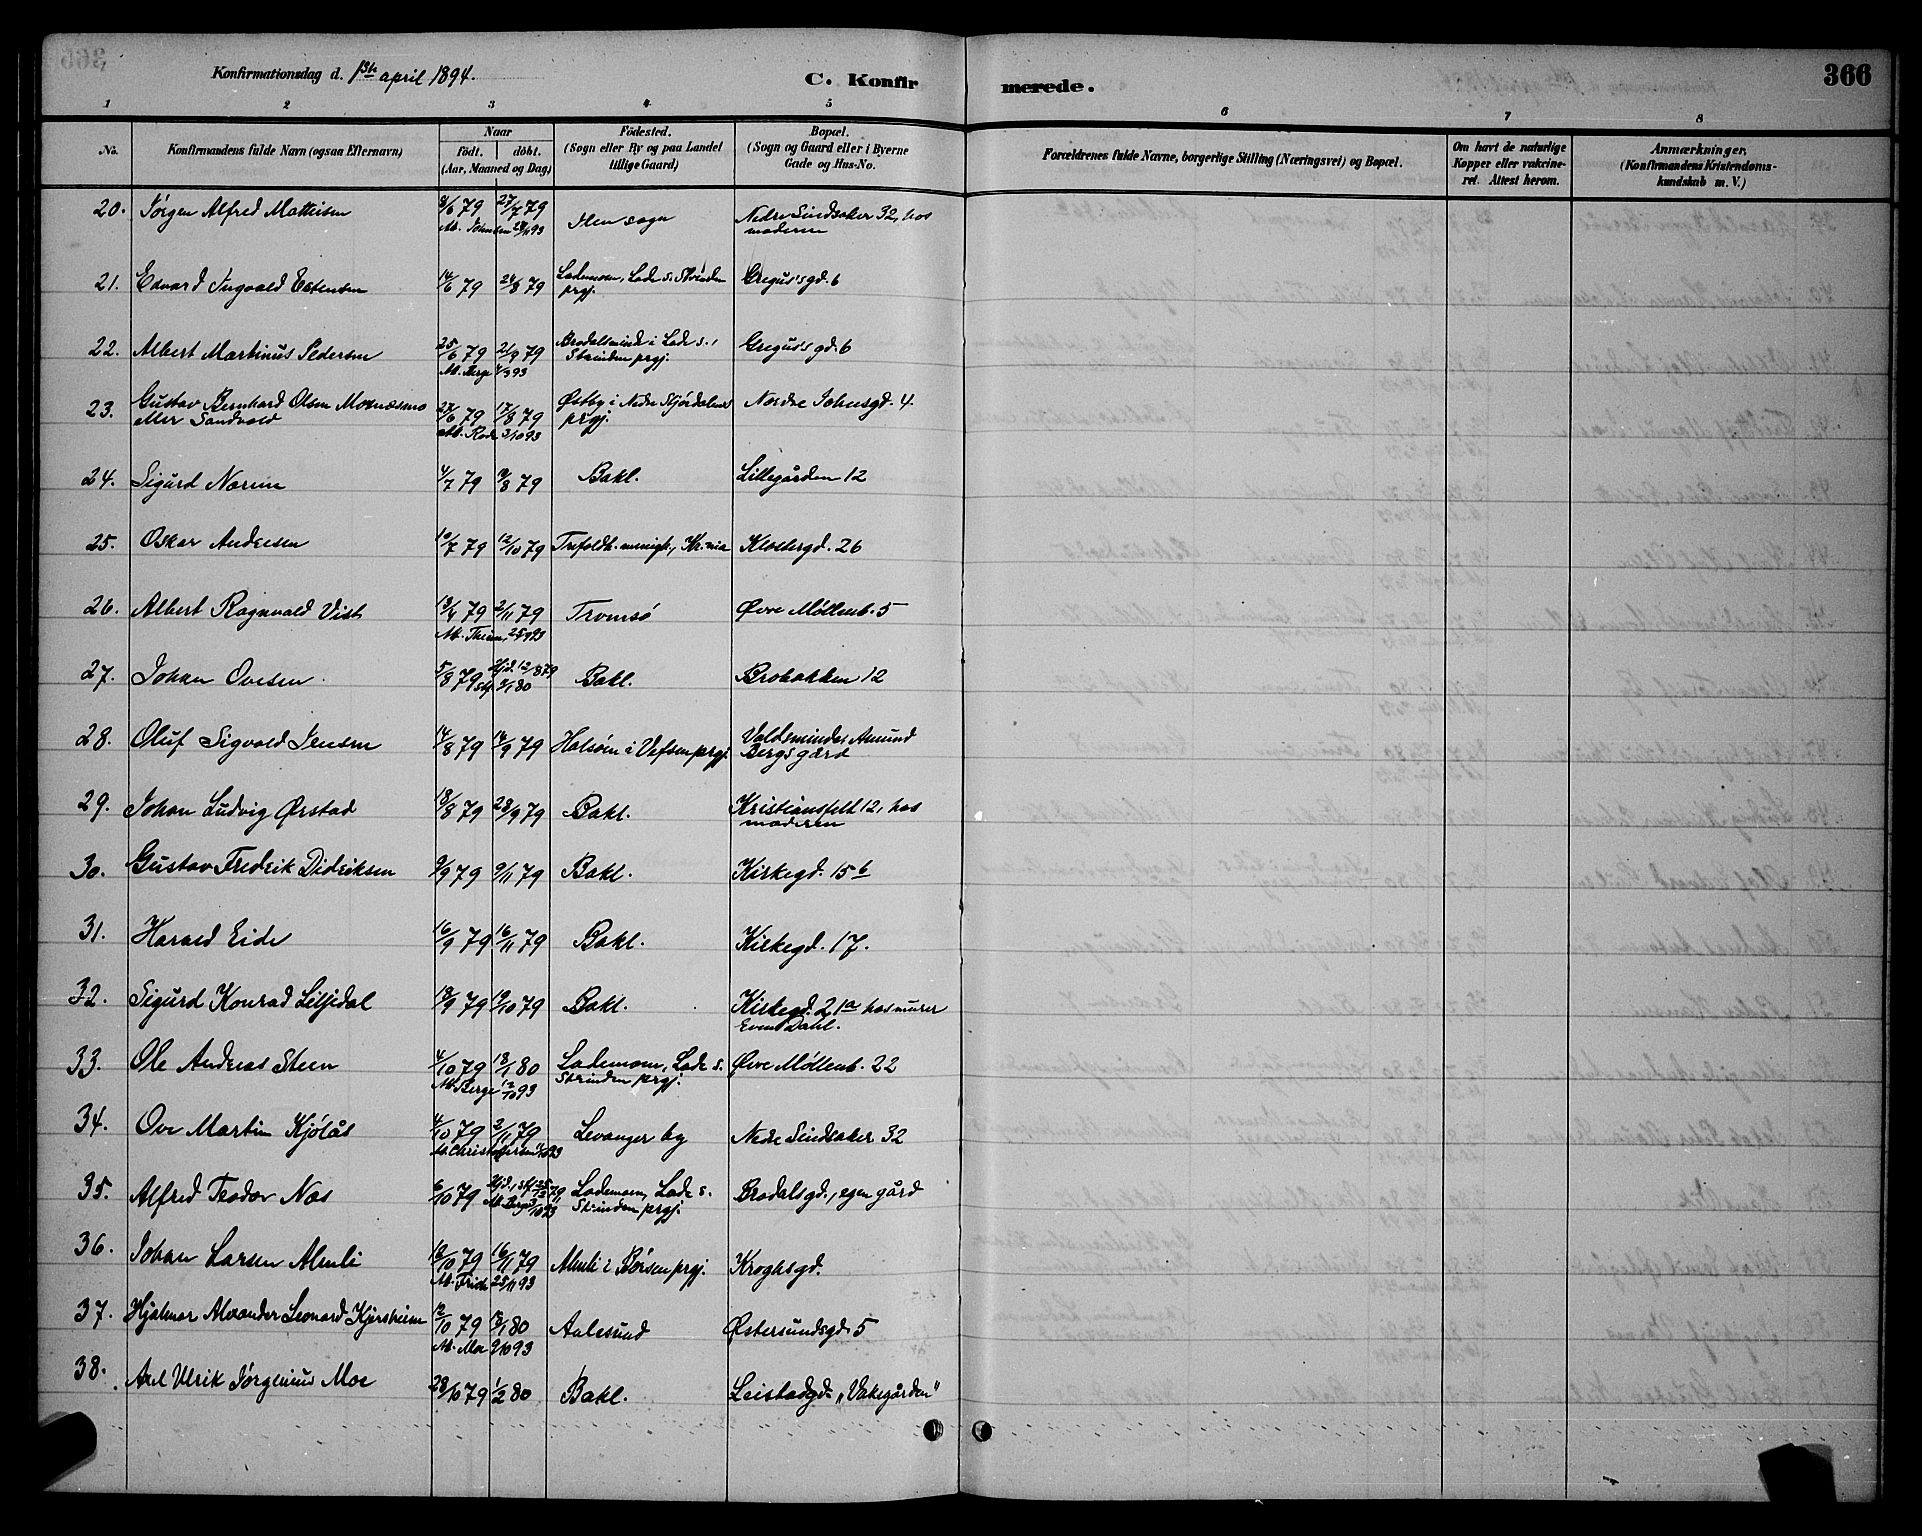 Konfirmationsdag d. 1ste april 1894. C. Konfirmerede. 366
1 2 3 4 5 6 7 8
No. Konfirmandens fulde Navn (ogsaa Efternavn) Naar født. døbt. (Aar, Maaned og Dag) Fødested. (Sogn eller By og paa Landet tillige Gaard) Bopæl. (Sogn og Gaard eller i Byerne Gade og Hus-No. Forældrenes fulde Navne, borgerlige Stilling (Næringsvei) og Bopæl. Om havt de naturlige Kopper eller vakcineret. Attest herom. Anmærkninger. (Konfirmandens Kristendomskundskab m. V.)
20. Jørgen Alfred Mathisen 8/6 79 27/7 79 Ilen sogn Nedre Sindsaker 32, hos
moderen
21. Edvard Ingvald Estensen 14/6 79 24/8 79 Lademoen, Lade s. Strinden
prgj. Gregus's gd. 6
22. Albert Martinus Pedersen 25/6 79 21/9 79 Brodalsminde i Lade s.,
Strinden prgj. Gregus's gd. 6
At. Berge 4/9 93
23. Gustav Bernhard Olsen Moxnæsmo
eller Sandvold 27/6 79 17/8 79 Østby i Nedre Stjørdalens
prgj. Nordre Johusgd. 4.
3/10 93
24. Sigurd Nærum 4/7 79 /8 79 Bakl. Lillegården 12
25. Oskar Andresen 10/7 79 12/10 79 Trefoldh. menigh., Kr.nia Klostergd. 26
26. Albert Ragnvald Vist 79 2/11 79 Tromsø Øvre Møllenb. 5
27. Johan Ovesen. 5/8 79 Hjd. 12/8 79
stf. 80 Bakl. Brobakken 12
28. Oluf Sigvald Jensen 14/8 79 14/9 79 Halsøen i Vefsen prgj. Voldsminde, Amund
Bergs gård
29. Johan Ludvig Ørstad 18/8 79 28/9 79 Bakl. Kristiansfelt 12, hos
moderen
30. Gustav Fredrik Didriksen 9/9 79 9/11 79 Bakl. Kirkegd. 15 b
31. Harald Eide 16/9 79 16/11 79 Bakl. Kirkegd. 17.
32. Sigurd Konrad Liljedal 18/9 79 19/10 79 Bakl. Kirkegd. 21a hos murer
Even Dahl.
33. Ole Andreas Steen 4/10 79 18/1 80 Lademoen, Lade s.
Strinden prgj. Øvre Møllenb. 22
At. Berge 12/10 93
34. Ove Martin Kjølås 4/10 79 2/11 79 Levanger by Nedre Sindsaker 32
35. Alfred Teodor Næs 6/10 79 Hjd., stf. 25/12 79
At. Berge /10 93 Lademoen, Lade s.
Strinden prgj. Brodalsgd., egen gård
36. Johan Larsen Almli 12/10 79 16/11 79 Almli i Børsen prgj. Kroghsgd.
25/11 93
37. Hjalmar Alexander Leonard Kjersheim 12/10 79 18/1 80 Aalesund Østersundsgd. 5
At. Moe 9/10 93
38. Axel Ulrik Jørginius Moe 28/10 79 1/2 80 Bakl. Leistadgd. „Vakegården"